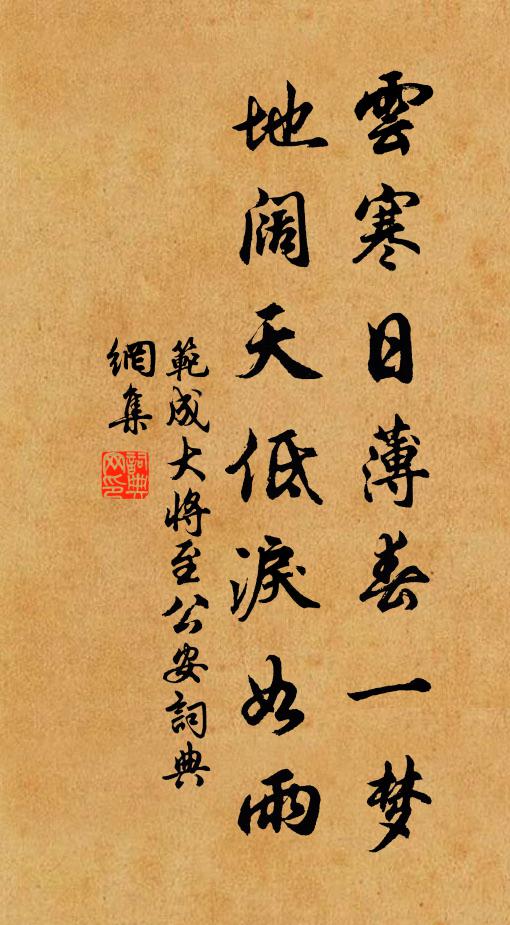 雲寒日薄春一梦
地阔天低淚如雨
範成大将至公安詞典
網集
詞典網印